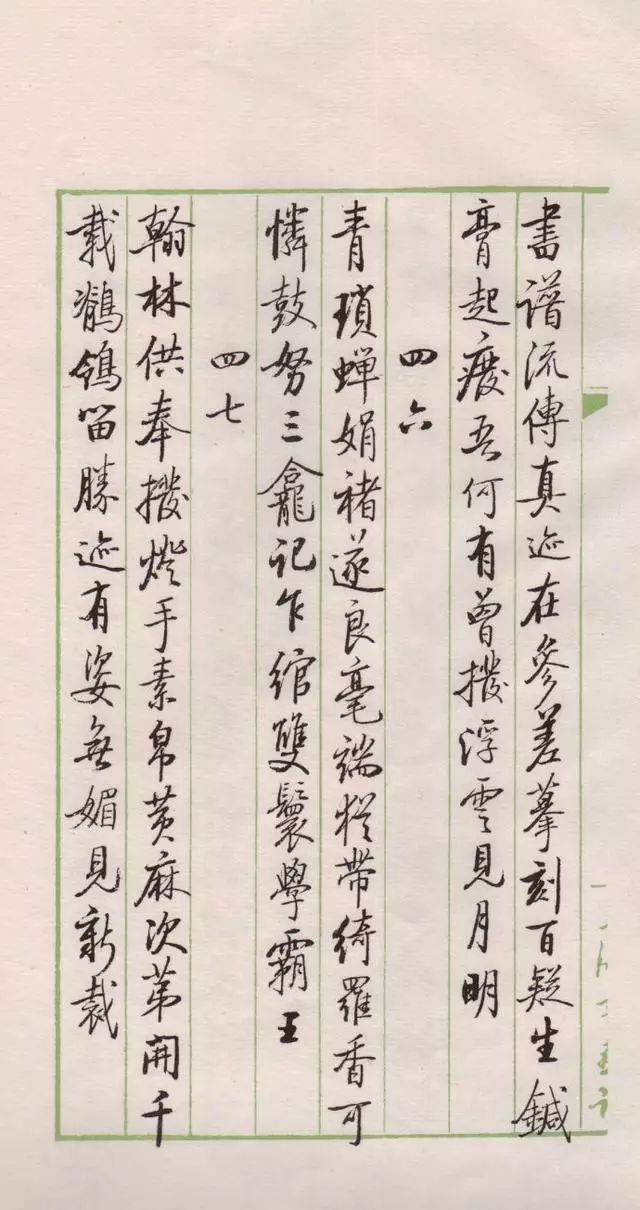 書譜流傳真迹在參差摹刻百疑生鍼
膏起癈吾何有曾撥浮雲見月明
四六
青瑣蟬娟褚遂良毫端猶帶綺羅香可
憐鼓努三龕記乍綰雙鬟學霸王
四七
翰林供奉撥燈手素帛黃麻次第開千
載鶺鴒留勝迹有姿無媚見新裁